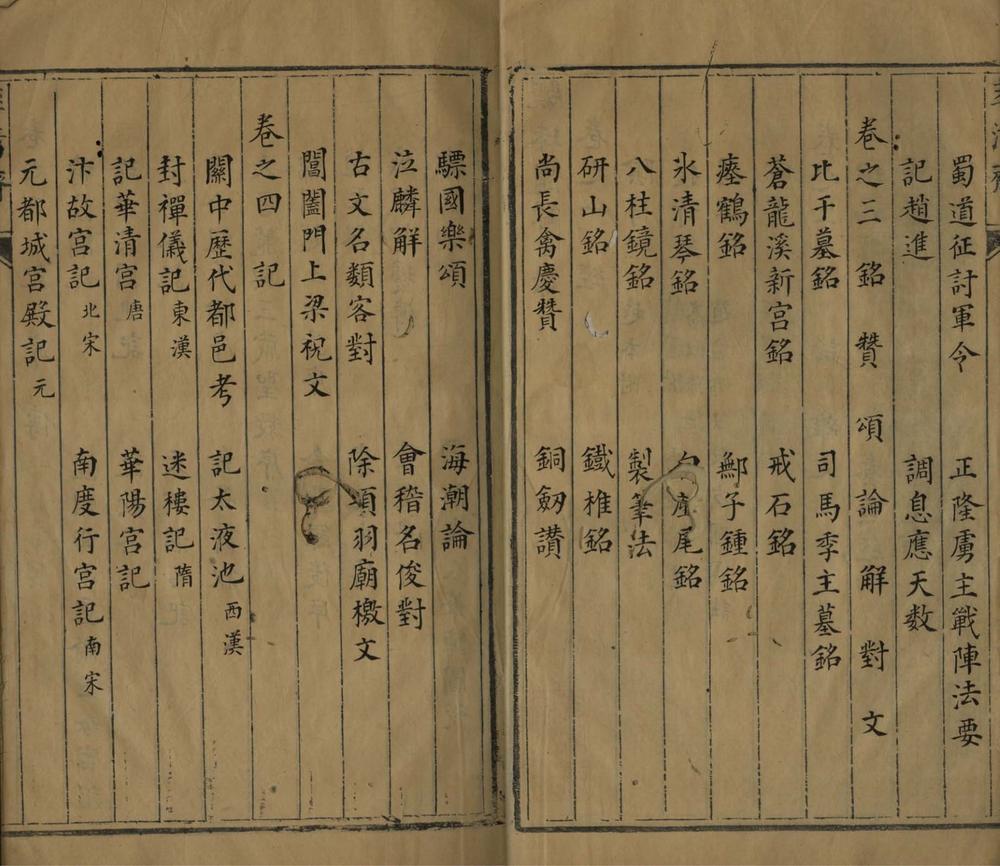 蜀道征討軍令　正隆虜主戰陣法要
記趙進　調息應天数
卷之三　銘　贊　頌　論　解　對　文
比干墓銘　司馬季主墓銘
蒼龍溪新宫銘　戒石銘
瘞鶴銘　鄭子鍾銘
氷清琴銘　尾銘
八柱鏡銘　製筆法
研山銘　鐵椎銘
尚長禽慶贊　銅劒讃
驃國樂頌　海潮論
泣麟解　會稽名俊對
古文名類客對　除項羽廟檄文
閶闔門上梁祝文
卷之四　記
關中歷代都邑考　記太液池 西漢
封禪儀記 東漢　迷樓記 隋
記華清宫 唐　華陽宫記
汴故宫記 北宋　南度行宫記 南宋
元都城宫殿記 元